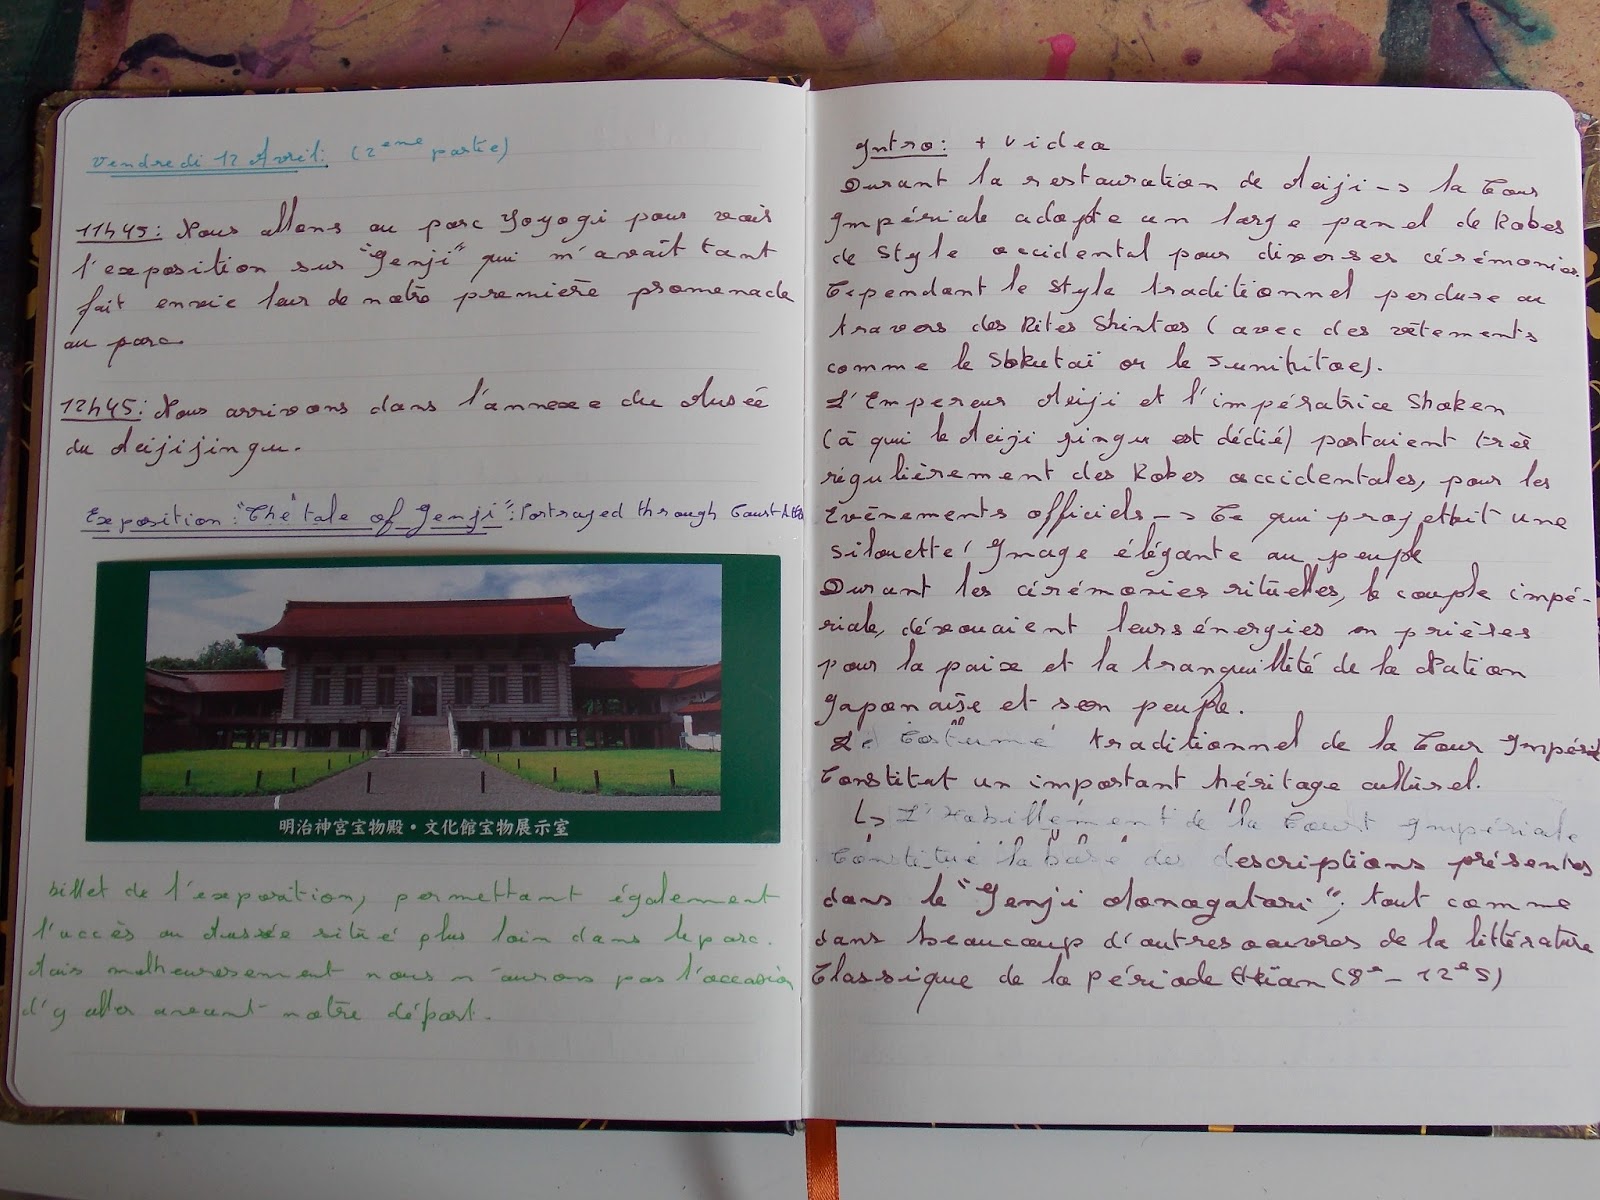 Vendredi 12 Avril: (2eme partie)
11h45: Nous allons au parc Yoyogi pour voir
l'exposition sur "Genji" qui m'avait tant
fait envie leur de notre première promenade
au parc
12h45: Nous arrivons dans l'annexe du Musée
du Meijijingu.
Exposition: "The tale of Genji": Portrayed through Court
明治神宮宝物殿・文化館宝物展示室
billet de l'exposition, permettant également
l'accès au Musée situé plus loin dans le parc.
Mais malheuresement nous n'aurons pas l'occasion
d'y aller avant notre départ.
Intro: + video
Durant la restauration de Meiji -> la Cour
Impériale adopte un large panel de Robes
de style occidental pour diverses cérémonies.
Cependant le style traditionnel perdure au
travers des Rites Shintos (avec des vêtements
comme le Sokutaï or le Junihitoe).
L'Empereur Meiji et l'impératrice Shoken
(à qui le Meiji jingu est dédié) portaient très
régulièrement des Robes occidentales, pour les
Evènements officiels -> Ce qui projettait une
silouette/Image élégante au peuple
Durant les cérémonies rituelles, le couple impé-
riale, dévouaient leurs énergies en prières
pour la paix et la tranquillité de la Nation
Japonaise et son peuple.
Le Costume traditionnel de la Cour Impéri
Constitut un important héritage culturel.
↳ L'Habillement de la Court Impériale
Constitue la base des descriptions présentes
dans le "Genji Monogatari", tout comme
dans beaucoup d'autres oeuvres de la littérature
Classique de la période Heian (8e - 12eS)